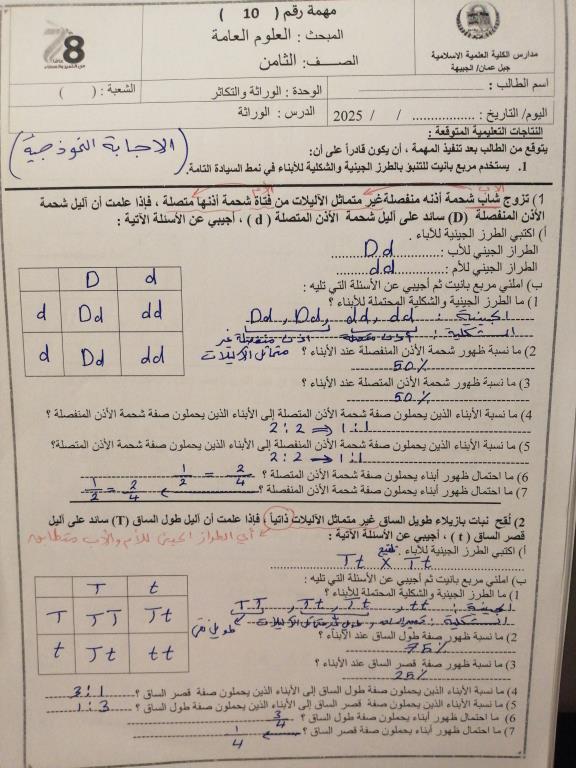 مهمة رقم ( 10 )
المبحث : العلوم العامة
الصف : الثامن
مدارس الكلية العلمية الاسلامية
جبل عمان/ الجبيهة
78
اسم الطالب :
الوحدة : الوراثة والتكاثر
الشعبة : ( )
اليوم/ التاريخ : / / 2025
الدرس : الوراثة
النتاجات التعليمية المتوقعة :
يتوقع من الطالب بعد تنفيذ المهمة ، أن يكون قادراً على أن:
1. يستخدم مربع بانيت للتنبؤ بالطرز الجينية والشكلية للأبناء في نمط السيادة التامة.
(الاجابة النموذجية)
الأب
الأم
1) تزوج شاب شحمة أذنه منفصلة غير متماثل الأليلات من فتاة شحمة أذنها متصلة ، فإذا علمت أن أليل شحمة
الأذن المنفصلة (D) سائد على أليل شحمة الأذن المتصلة ( d ) ، أجيبي عن الأسئلة الآتية :
أ) اكتبي الطرز الجينية للآباء .
الطراز الجيني للأب : Dd
الطراز الجيني للأم : dd
ب) املئي مربع بانيت ثم أجيبي عن الأسئلة التي تليه :
D d
d Dd dd
d Dd dd
1) ما الطرز الجينية والشكلية المحتملة للأبناء ؟
الجينية : Dd , Dd , dd , dd
الشكلية : أذن منفصلة غير متماثل الأليلات أذن متصلة
2) ما نسبة ظهور شحمة الأذن المنفصلة عند الأبناء ؟
50%
3) ما نسبة ظهور شحمة الأذن المتصلة عند الأبناء ؟
50%
4) ما نسبة الأبناء الذين يحملون صفة شحمة الأذن المتصلة إلى الأبناء الذين يحملون صفة شحمة الأذن المنفصلة ؟
2 : 2 ⇒ 1 : 1
5) ما نسبة الأبناء الذين يحملون صفة شحمة الأذن المنفصلة إلى الأبناء الذين يحملون صفة شحمة الأذن المتصلة؟
2 : 2 → 1 : 1
6) ما احتمال ظهور أبناء يحملون صفة شحمة الأذن المتصلة ؟ 2/4 = 1/2
7) ما احتمال ظهور أبناء يحملون صفة شحمة الأذن المنفصلة ؟ 2/4 = 1/2
2) لُقح نبات بازيلاء طويل الساق غير متماثل الأليلات ذاتياً ، فإذا علمت أن أليل طول الساق (T) سائد على أليل
قصر الساق ( t ) ، أجيبي عن الأسئلة الآتية :
أي الطراز الجيني للأم والأب متطابق
أ) اكتبي الطرز الجينية للآباء . Tt X Tt
ب) املئي مربع بانيت ثم أجيبي عن الأسئلة التي تليه :
T t
T TT Tt
t Tt tt
1) ما الطرز الجينية والشكلية المحتملة للأبناء ؟
الجينية : tt , Tt , Tt , TT
الشكلية : قصير الساق طويل غير متماثل الأليلات طويل نقي
2) ما نسبة ظهور صفة طول الساق عند الأبناء ؟
75%
3) ما نسبة ظهور صفة قصر الساق عند الأبناء ؟
25%
4) ما نسبة الأبناء الذين يحملون صفة طول الساق إلى الأبناء الذين يحملون صفة قصر الساق ؟ 3 : 1
5) ما نسبة الأبناء الذين يحملون صفة قصر الساق إلى الأبناء الذين يحملون صفة طول الساق ؟ 1 : 3
6) ما احتمال ظهور أبناء يحملون صفة طول الساق ؟ 3/4
7) ما احتمال ظهور أبناء يحملون صفة قصر الساق ؟ 1/4